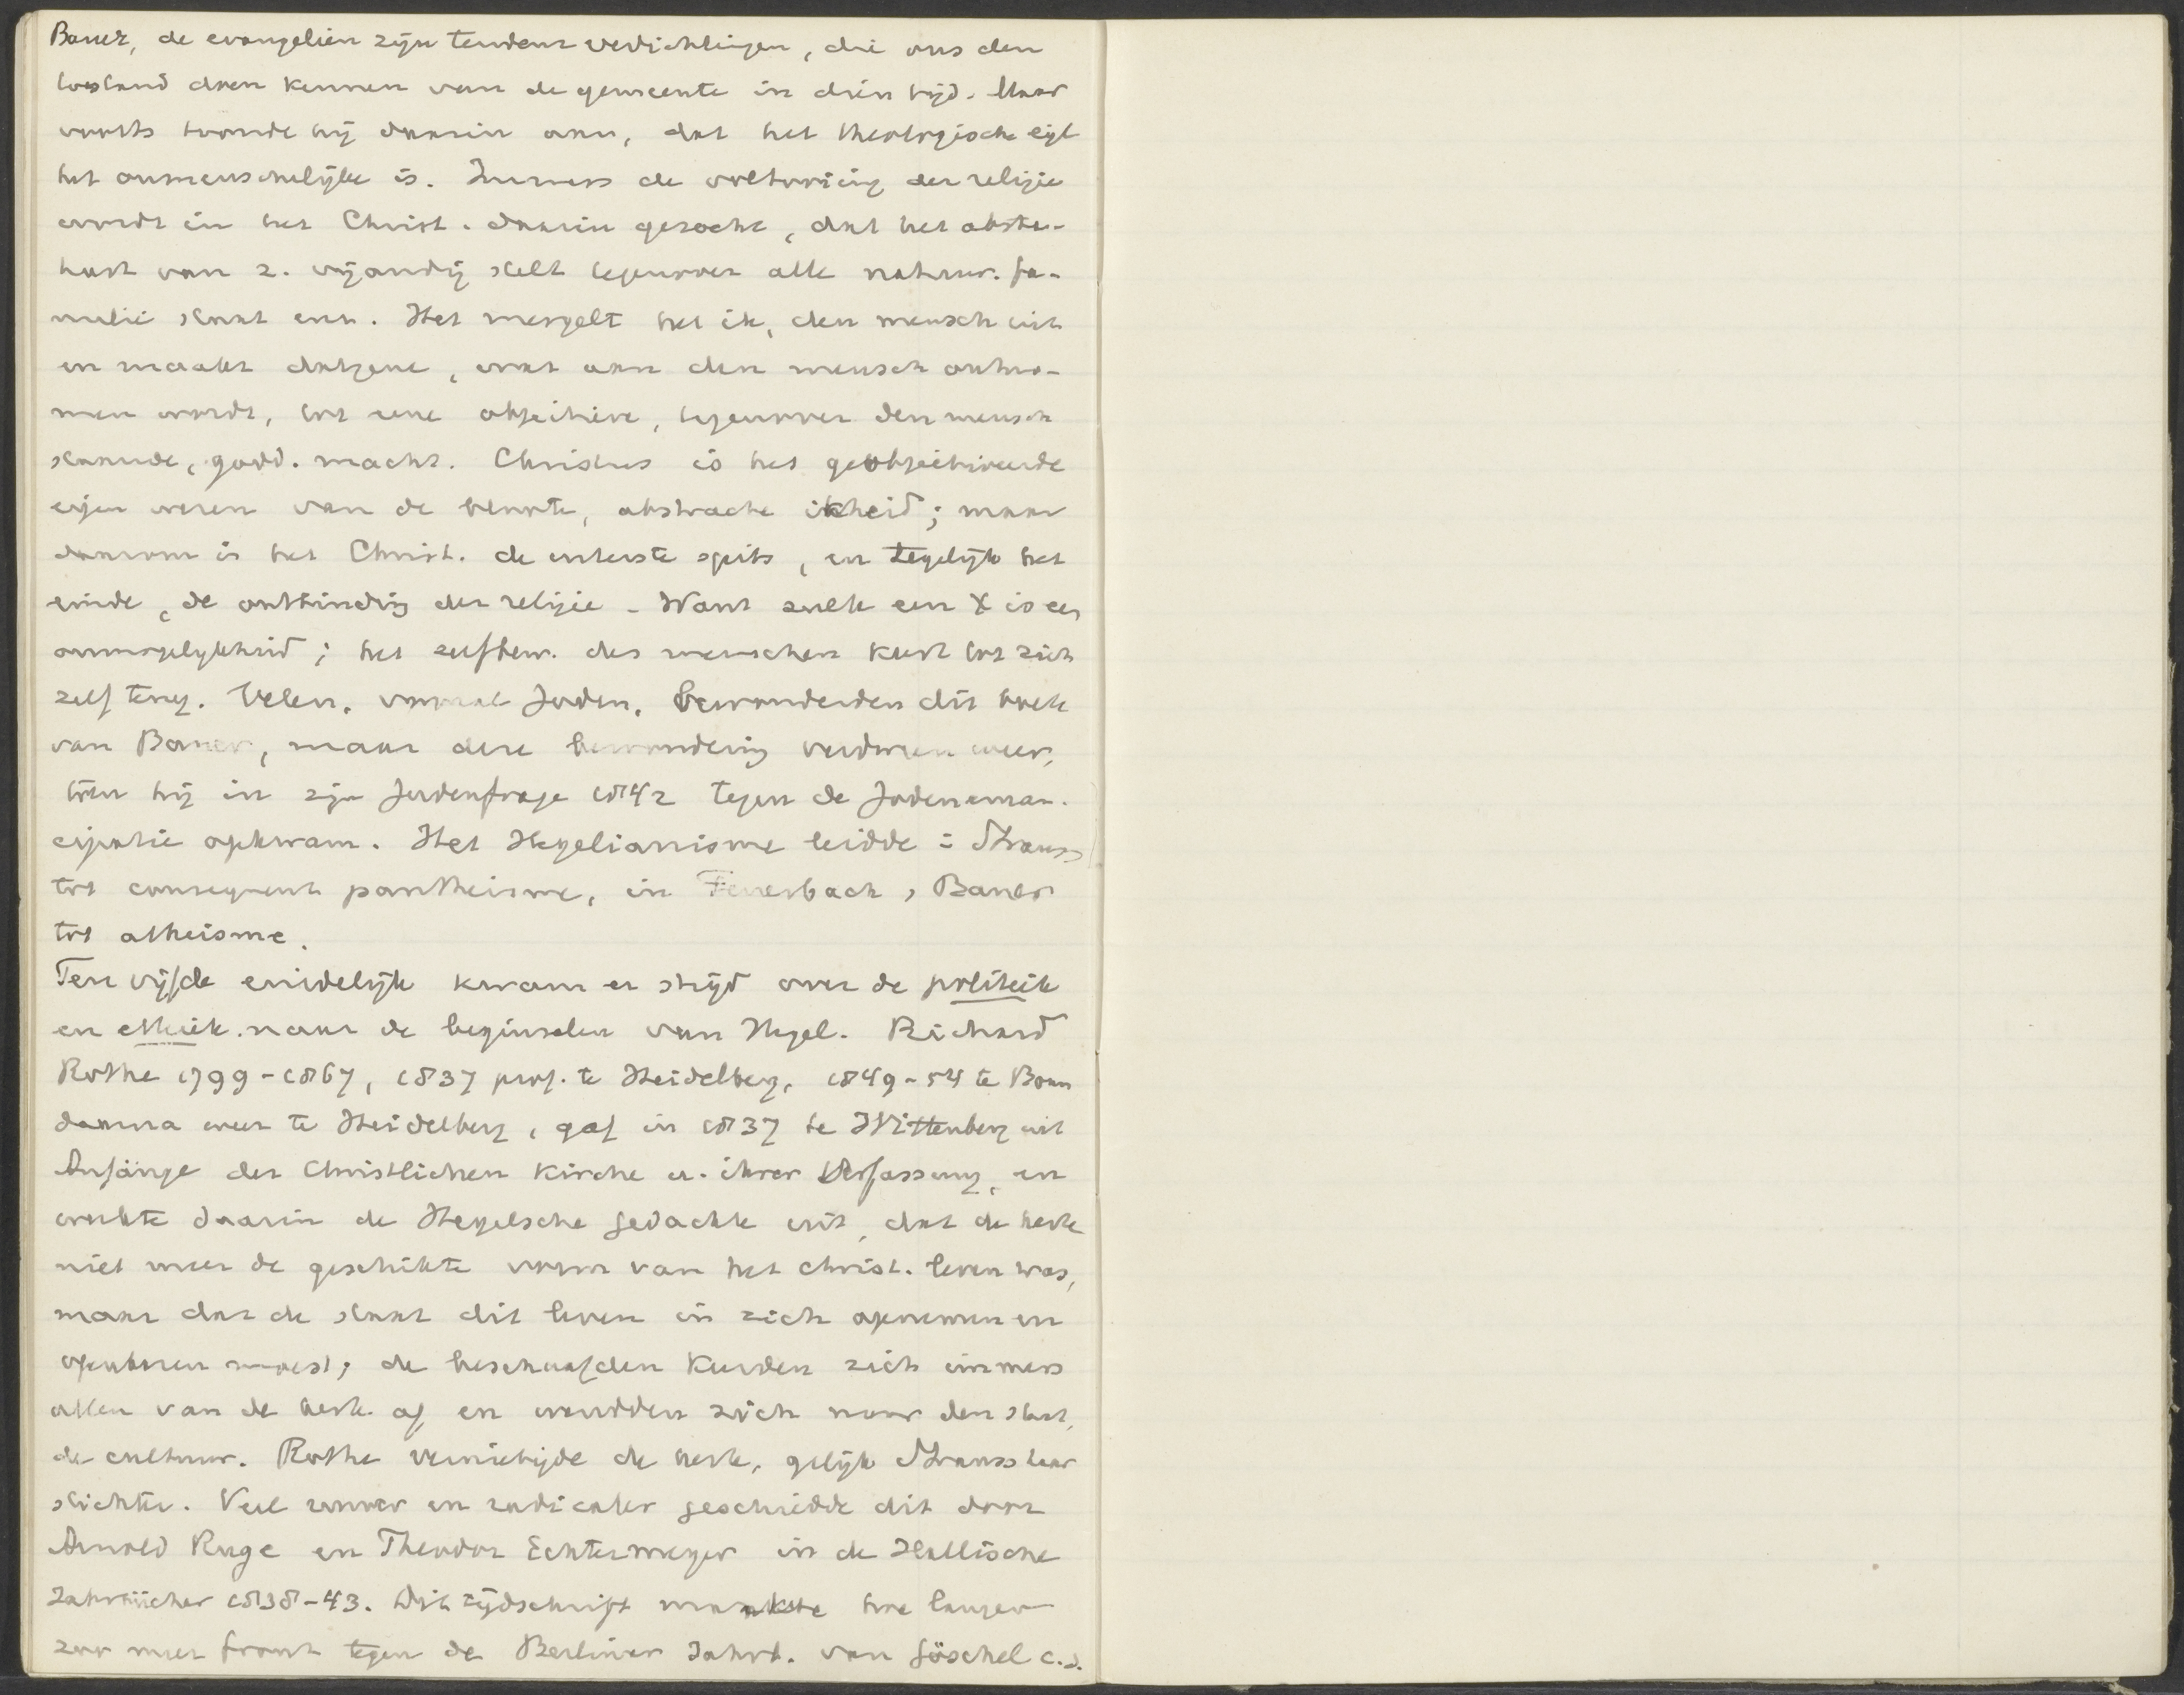 Bauer, de evangeliën zijn tendenz verdichtingen, die ons den
toestand doen kennen van de gemeente in dien tijd. Maar
voorts toonde hij daarin aan, dat het theologische eigl
het onmenschelijke is. Immers de voltooiing der religie
wordt in het Christ. daarin gezocht, dat het abstr.
van z. vijandig stelt tegenover alle natuur. fa-
milie staat enz. Het mergelt het ik, den mensch uit
en maakt datgene, wat aan den mensch ontno-
men wordt, tot eene objectieve, tegenover den mensch
staande, godd. macht. Christus is het geobjectiveerde
eigen wezen van de beroofde, abstracte ikheid; maar
daarom is het Christ. de uiterste spits, en tegelijk het
einde, de ontbinding der religie. Want zulk een X is een
onmogelijkheid; het zelfbew. des menschen keert tot zich
zelf terug. Velen, vooral Joden, bewonderden dit boek
van Bauer, maar deze bewondering verdween weer,
toen hij in zijn Judenfrage 1842 tegen de Jodeneman-
cipatie opkwam. Het Hegelianisme leidde in Strauss
tot consequent pantheisme, in Feuerbach, Bauer
tot atheisme.
Ten vijfde eindelijk kwam er strijd over de politiek
en ethiek naar de beginselen van Hegel. Richard
Rothe 1799-1867, 1837 prof. te Heidelberg, 1849-54 te Bonn
daarna weer te Heidelberg, gaf in 1837 te Wittenberg uit
Anfänge der Christlichen Kirche u. ihrer Verfassung, en
werkte daarin de Hegelsche gedachte uit, dat de kerk
niet meer de geschikte vorm van het christ. leven was,
maar dat de staat dit leven in zich opnemen en
moest; de beschaafden keerden zich immers
allen van de kerk af en wendden zich naar den staat,
de cultuur. Rothe vernietigde de kerk, gelijk Strauss haar
stichter. Veel erger en radicaler geschiedde dit door
Arnold Ruge en Theodor Echtermeyer in de Hallische
Jahrbücher 1838-43. Dit tijdschrift maakte hoe langer
zoo meer front tegen de Berliner Jahrb. van Göschel c.s.